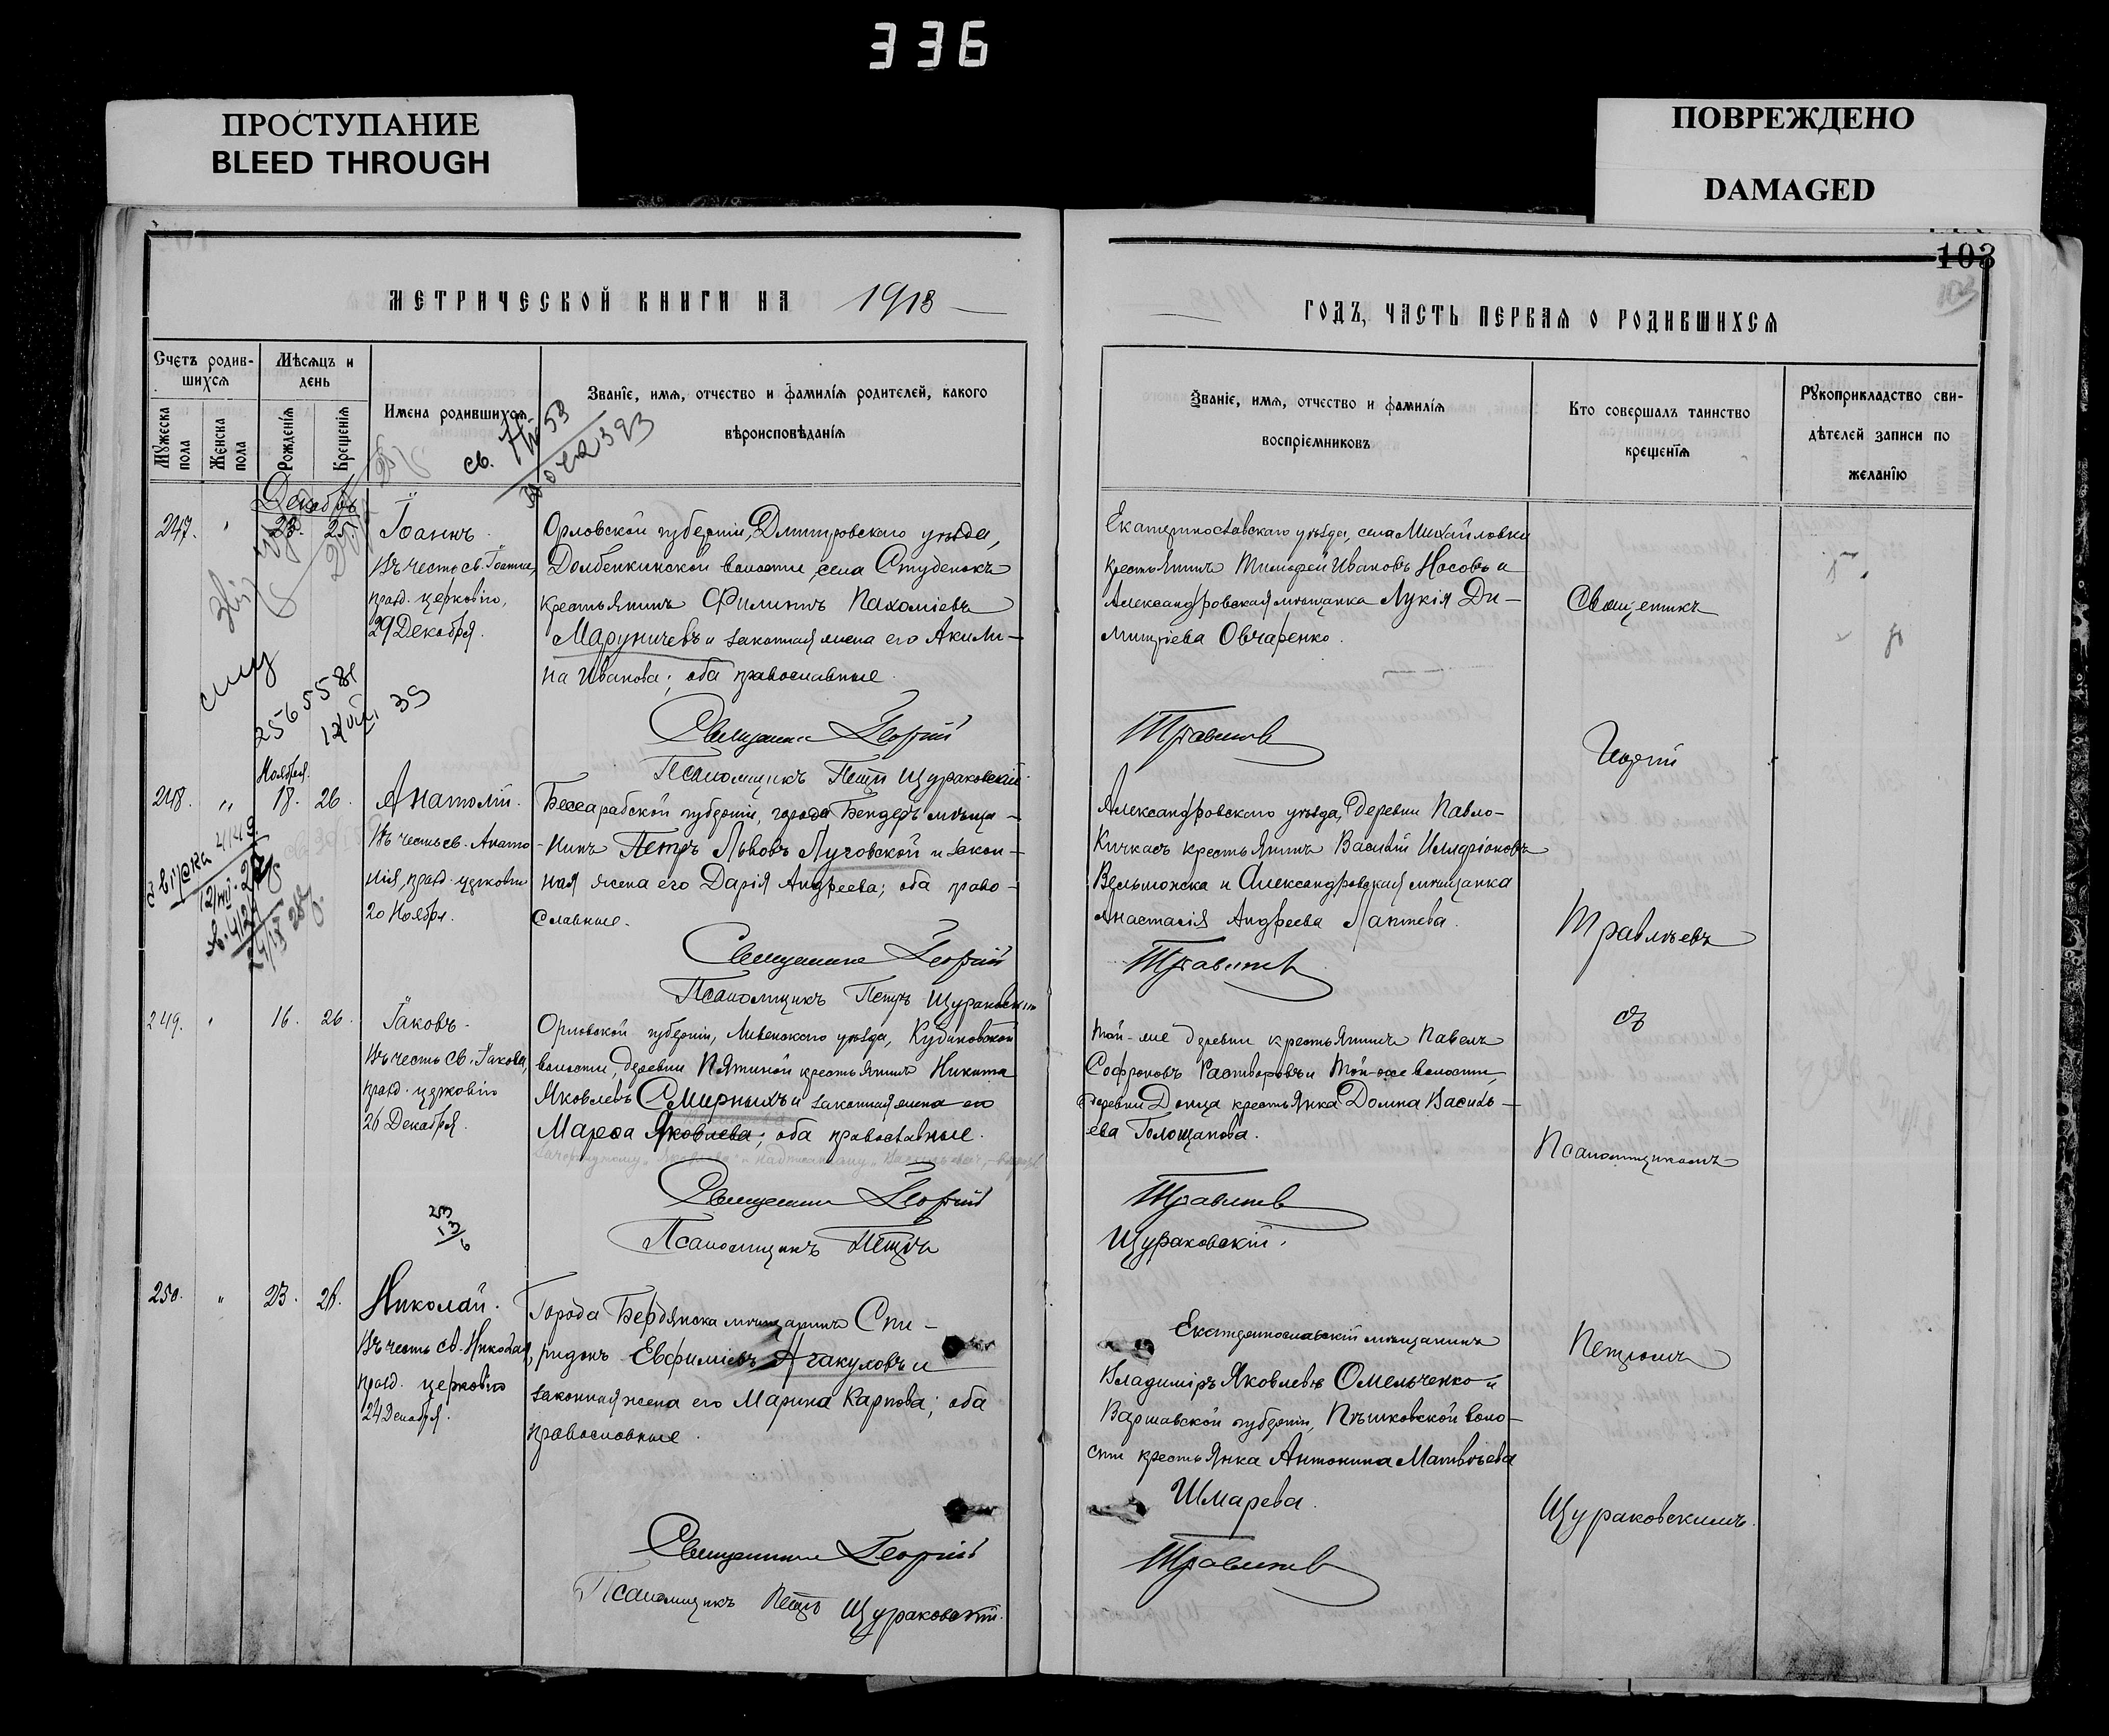 336
ПРОСТУПАНИЕ
BLEED THROUGH
ПОВРЕЖДЕНО
DAMAGED
103
МЕТРИЧЕСКОЙ КНИГИ НА 1913
ГОДЪ, ЧАСТЬ ПЕРВАЯ О РОДИВШИХСЯ
Счетъ родив-
шихся
Мѣсяцъ и
день
Мужеска
пола
Женска
пола
Рожденія
Крещенія
Имена родившихся
Званіе, имя, отчество и фамилія родителей, какого
вѣроисповѣданія
Званіе, имя, отчество и фамилія
воспріемниковъ
Кто совершалъ таинство
крещенія
Рукоприкладство сви-
дѣтелей записи по
желанію
Декабрь
247. 23. 25.
Іоаннъ.
Въ честь св. Іоанна,
празд. церковію,
29 Декабря.
Орловской губерніи, Дмитровскаго уѣзда,
Долбенкинской волости, села Студенокъ
крестьянинъ Филиппъ Пахоміевъ
Маруничевъ и законная жена его Акили-
на Иванова; оба православные.
Священникъ Георгій
Псаломщикъ Петръ Щураковскій
Екатеринославскаго уѣзда, села Михайловки
крестьянинъ Тимофей Ивановъ Носовъ и
Александровская мѣщанка Лукія Ди-
митріева Овчаренко.
Травлѣевъ
Священникъ
Георгій
Травлѣевъ
съ
Псаломщикомъ
Петромъ
Щураковскимъ.
Ноября.
248. " 18. 26.
Анатолій.
Въ честь св. Анато-
лія, празд. церковію
20 Ноября.
Бессарабской губерніи, города Бендеръ мѣща-
нинъ Петръ Львовъ Луговской и закон-
ная жена его Дарія Андреева; оба право-
славные.
Священникъ Георгій
Псаломщикъ Петръ Щураковскій
Александровскаго уѣзда, деревни Павло-
Кичкасъ крестьянинъ Василій
и Александровская мѣщанка
Анастасія Андреева Лаптева.
Травлѣевъ
249. 16. 26.
Іаковъ.
Въ честь св. Іакова,
празд. церковію
26 Декабря.
Орловской губерніи, Ливенскаго уѣзда,
волости, деревни Пятиной крестьянинъ Никита
Яковлевъ Смирныхъ и законная жена его
Марѳа Яковлева; оба православные.
Священникъ Георгій
Псаломщикъ Петръ
Той-же деревни крестьянинъ Павелъ
Софроновъ Растворовъ и той-же волости,
деревни Донца крестьянка Домна Василь-
ева Голощапова.
Травлѣевъ
Щураковскій.
250. " 23. 26.
Николай.
Въ честь св. Николая,
празд. церковію
24 Декабря.
Города Бердянска мѣщанинъ Спи-
ридонъ Евфиміевъ Агакуловъ и
законная жена его Марина Карпова; оба
православные.
Священникъ Георгій
Псаломщикъ Петръ Щураковскій.
Екатеринославскій мѣщанинъ
Владиміръ Яковлевъ Омельченко и
Варшавской губерніи, воло-
сти крестьянка Антонина Матвѣева
Шмарева.
Травлѣевъ